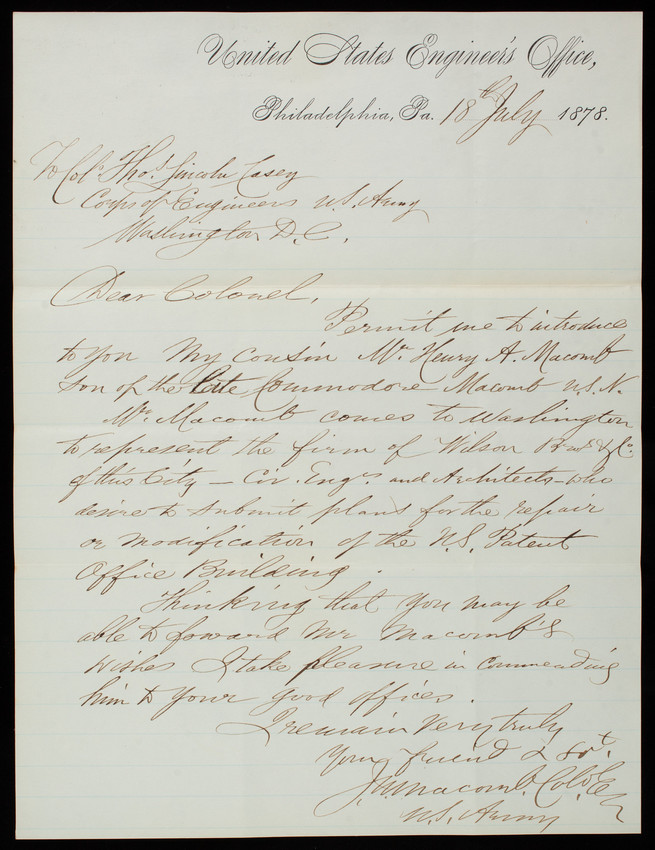 United States Engineer's Office,
Philadelphia, Pa. 18th July 1878.
To Col. Thos. Lincoln Casey
Corps of Engineers U.S. Army
Washington D.C.
Dear Colonel,
Permit me to introduce
to you My cousin Mr. Henry A. Macomb
son of the late Commodore Macomb U.S.N.
Mr. Macomb comes to Washington
to represent the firm of Wilson Bros & Co.
of this City – Civ. Engrs. and Architects – who
desire to submit plans for the repair
or modification of the U.S. Patent
Office Building.
Thinking that you may be
able to foward Mr Macomb's
wishes I take pleasure in commending
him to your good offices.
I remain Very truly
Your friend & Svt.
J.N. Macomb. Col. of E
U.S. Army